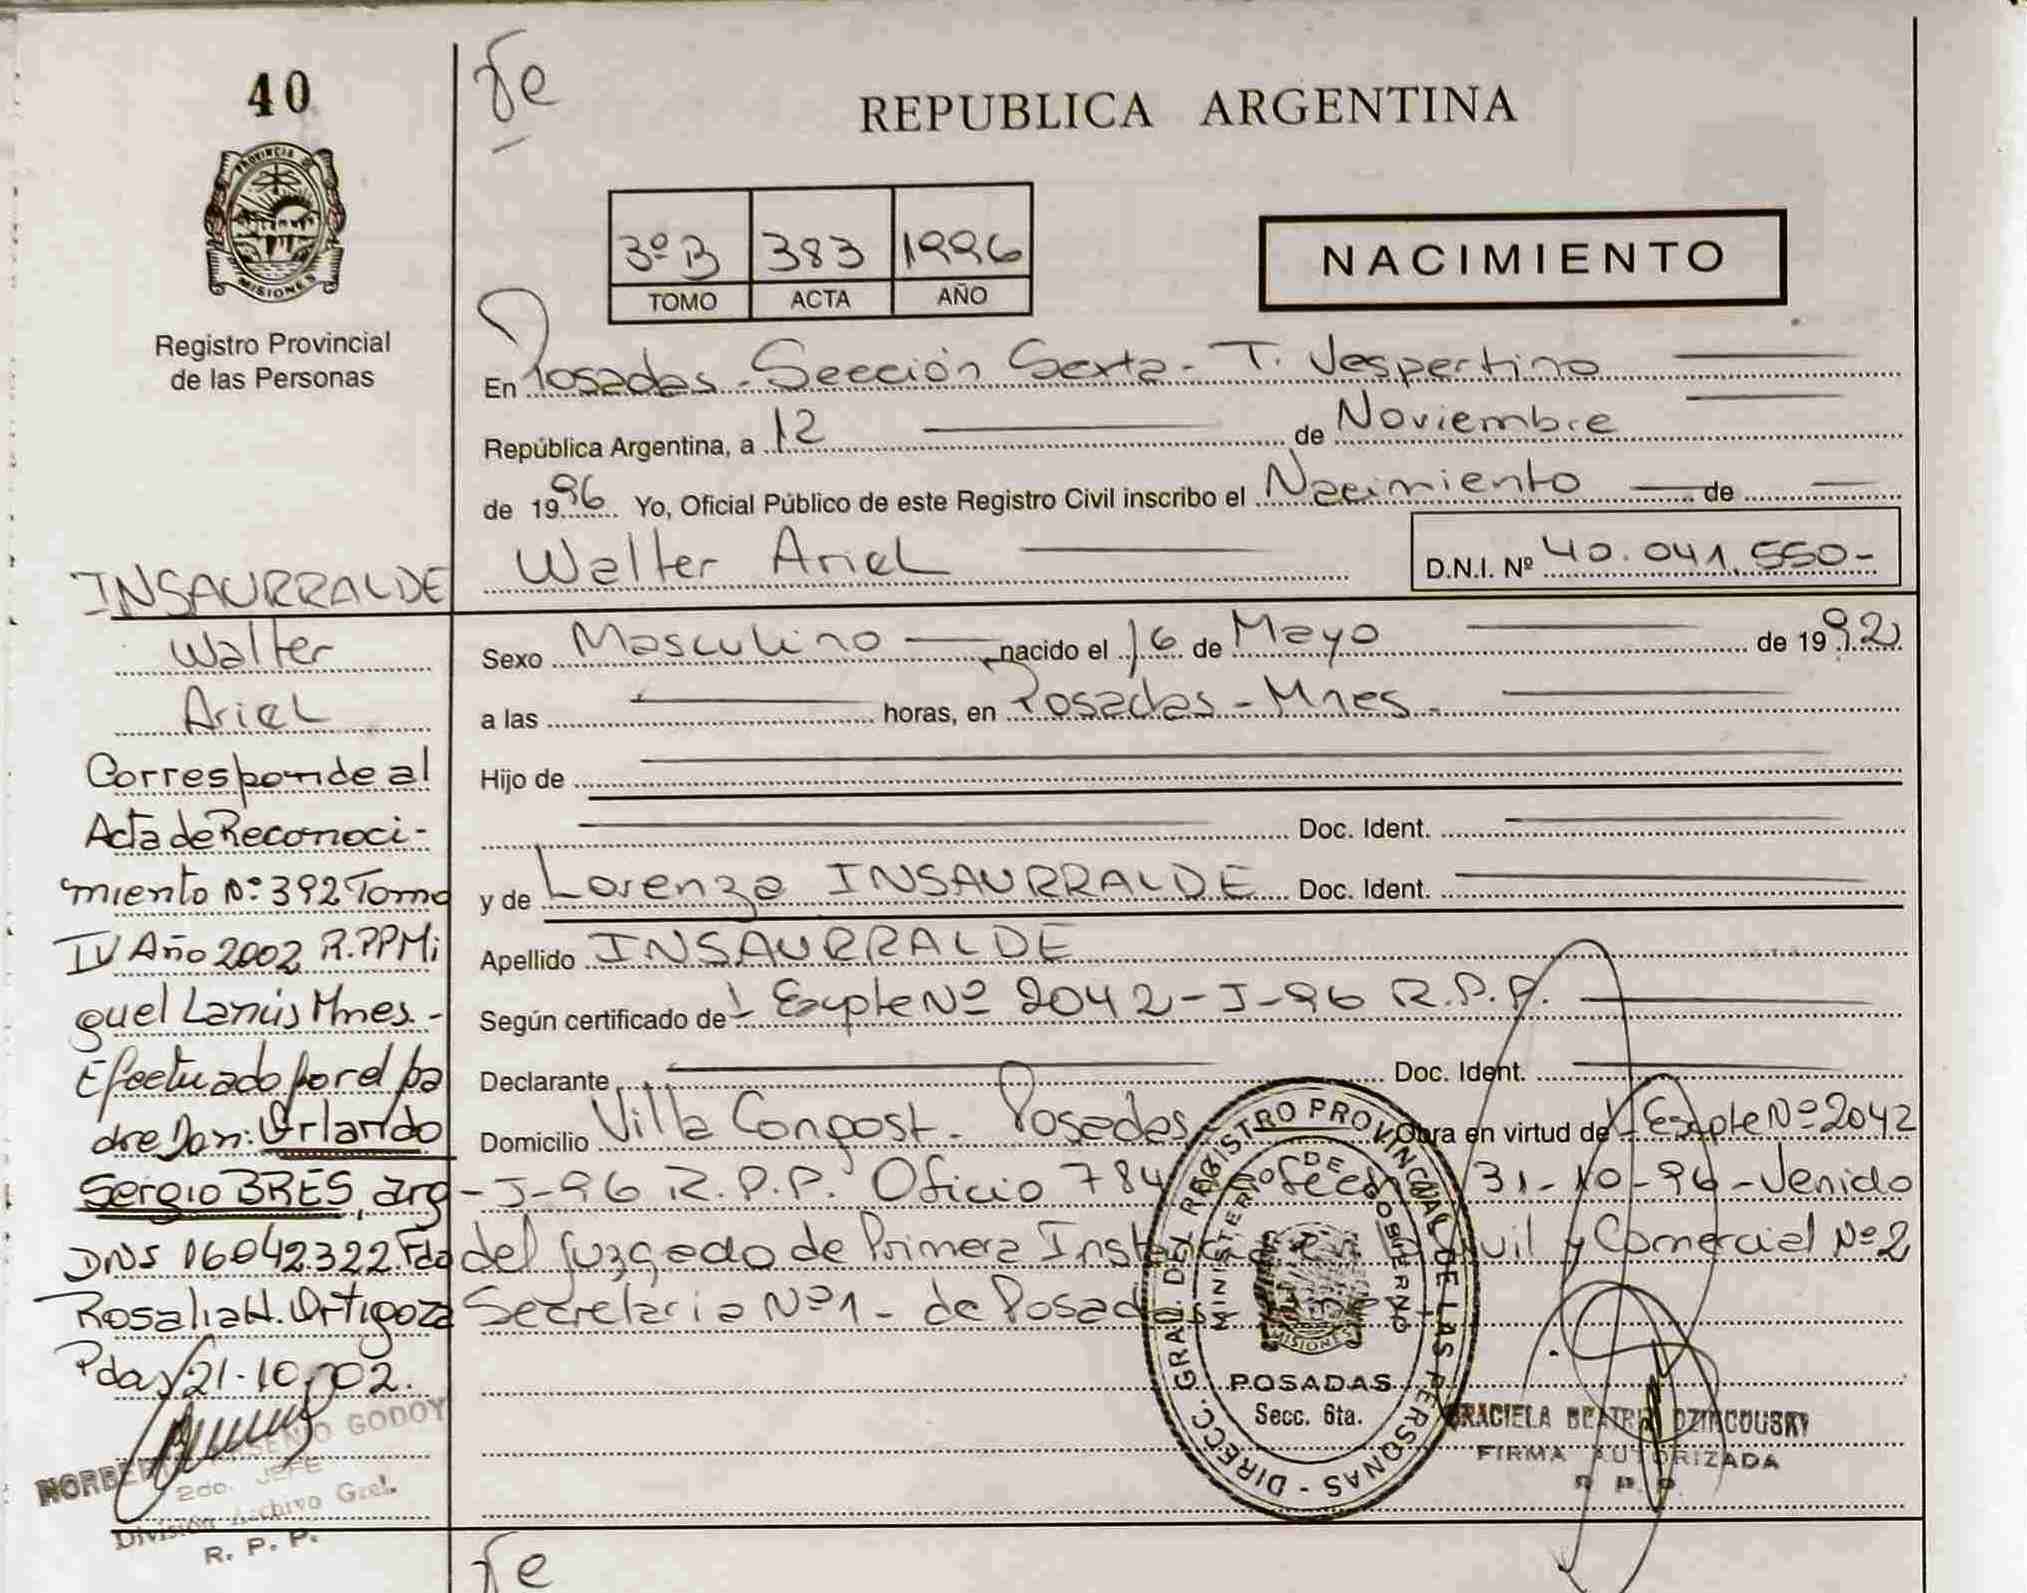 40
Je
REPUBLICA ARGENTINA
PROVINCIA DE
MISIONES
Registro Provincial
de las Personas
3º B 383 1996
TOMO ACTA AÑO
NACIMIENTO
En Posadas - Sección Sexta - T. Vespertino
República Argentina, a 12 de Noviembre
de 1996 Yo, Oficial Público de este Registro Civil inscribo el Nacimiento de
Walter Ariel
D.N.I. Nº 40.041.550-
Sexo Masculino nacido el 16 de Mayo de 1992
a las horas, en Posadas - Mnes.
Hijo de
Doc. Ident.
y de Lorenza INSAURRALDE Doc. Ident.
Apellido INSAURRALDE
Según certificado de Expte Nº 2042-I-96 R.P.P.
Declarante Doc. Ident.
Domicilio Villa Congost - Posadas Obra en virtud de Expte Nº 2042
-I-96 R.P.P. Oficio 784 de fecha 31-10-96 - Venido
del Juzgado de Primera Inst Civil y Comercial Nº 2
Secretaria Nº 1 - de Posadas
INSAURRALDE
Walter
Ariel
Corresponde al
Acta de Reconoci-
miento Nº 392 Tomo
IV Año 2002 R.PP Mi
guel Lanús Mnes.-
Efectuado por el pa
dre Don: Orlando
Sergio BRES, arg
DNS 16042.322. Fdo
Rosalia H. Ortigoza
Pdas/21-10-02.
GODOY
2do. JEFE
División Archivo Gral.
R. P. P.
DIRECC. GRAL. DEL REGISTRO PROVINCIAL DE LAS PERSONAS
MINISTERIO DE GOBIERNO
MISIONES
POSADAS
Secc. 6ta.
GRACIELA BEATRIZ DZINCOUSKY
FIRMA AUTORIZADA
R P P
Je